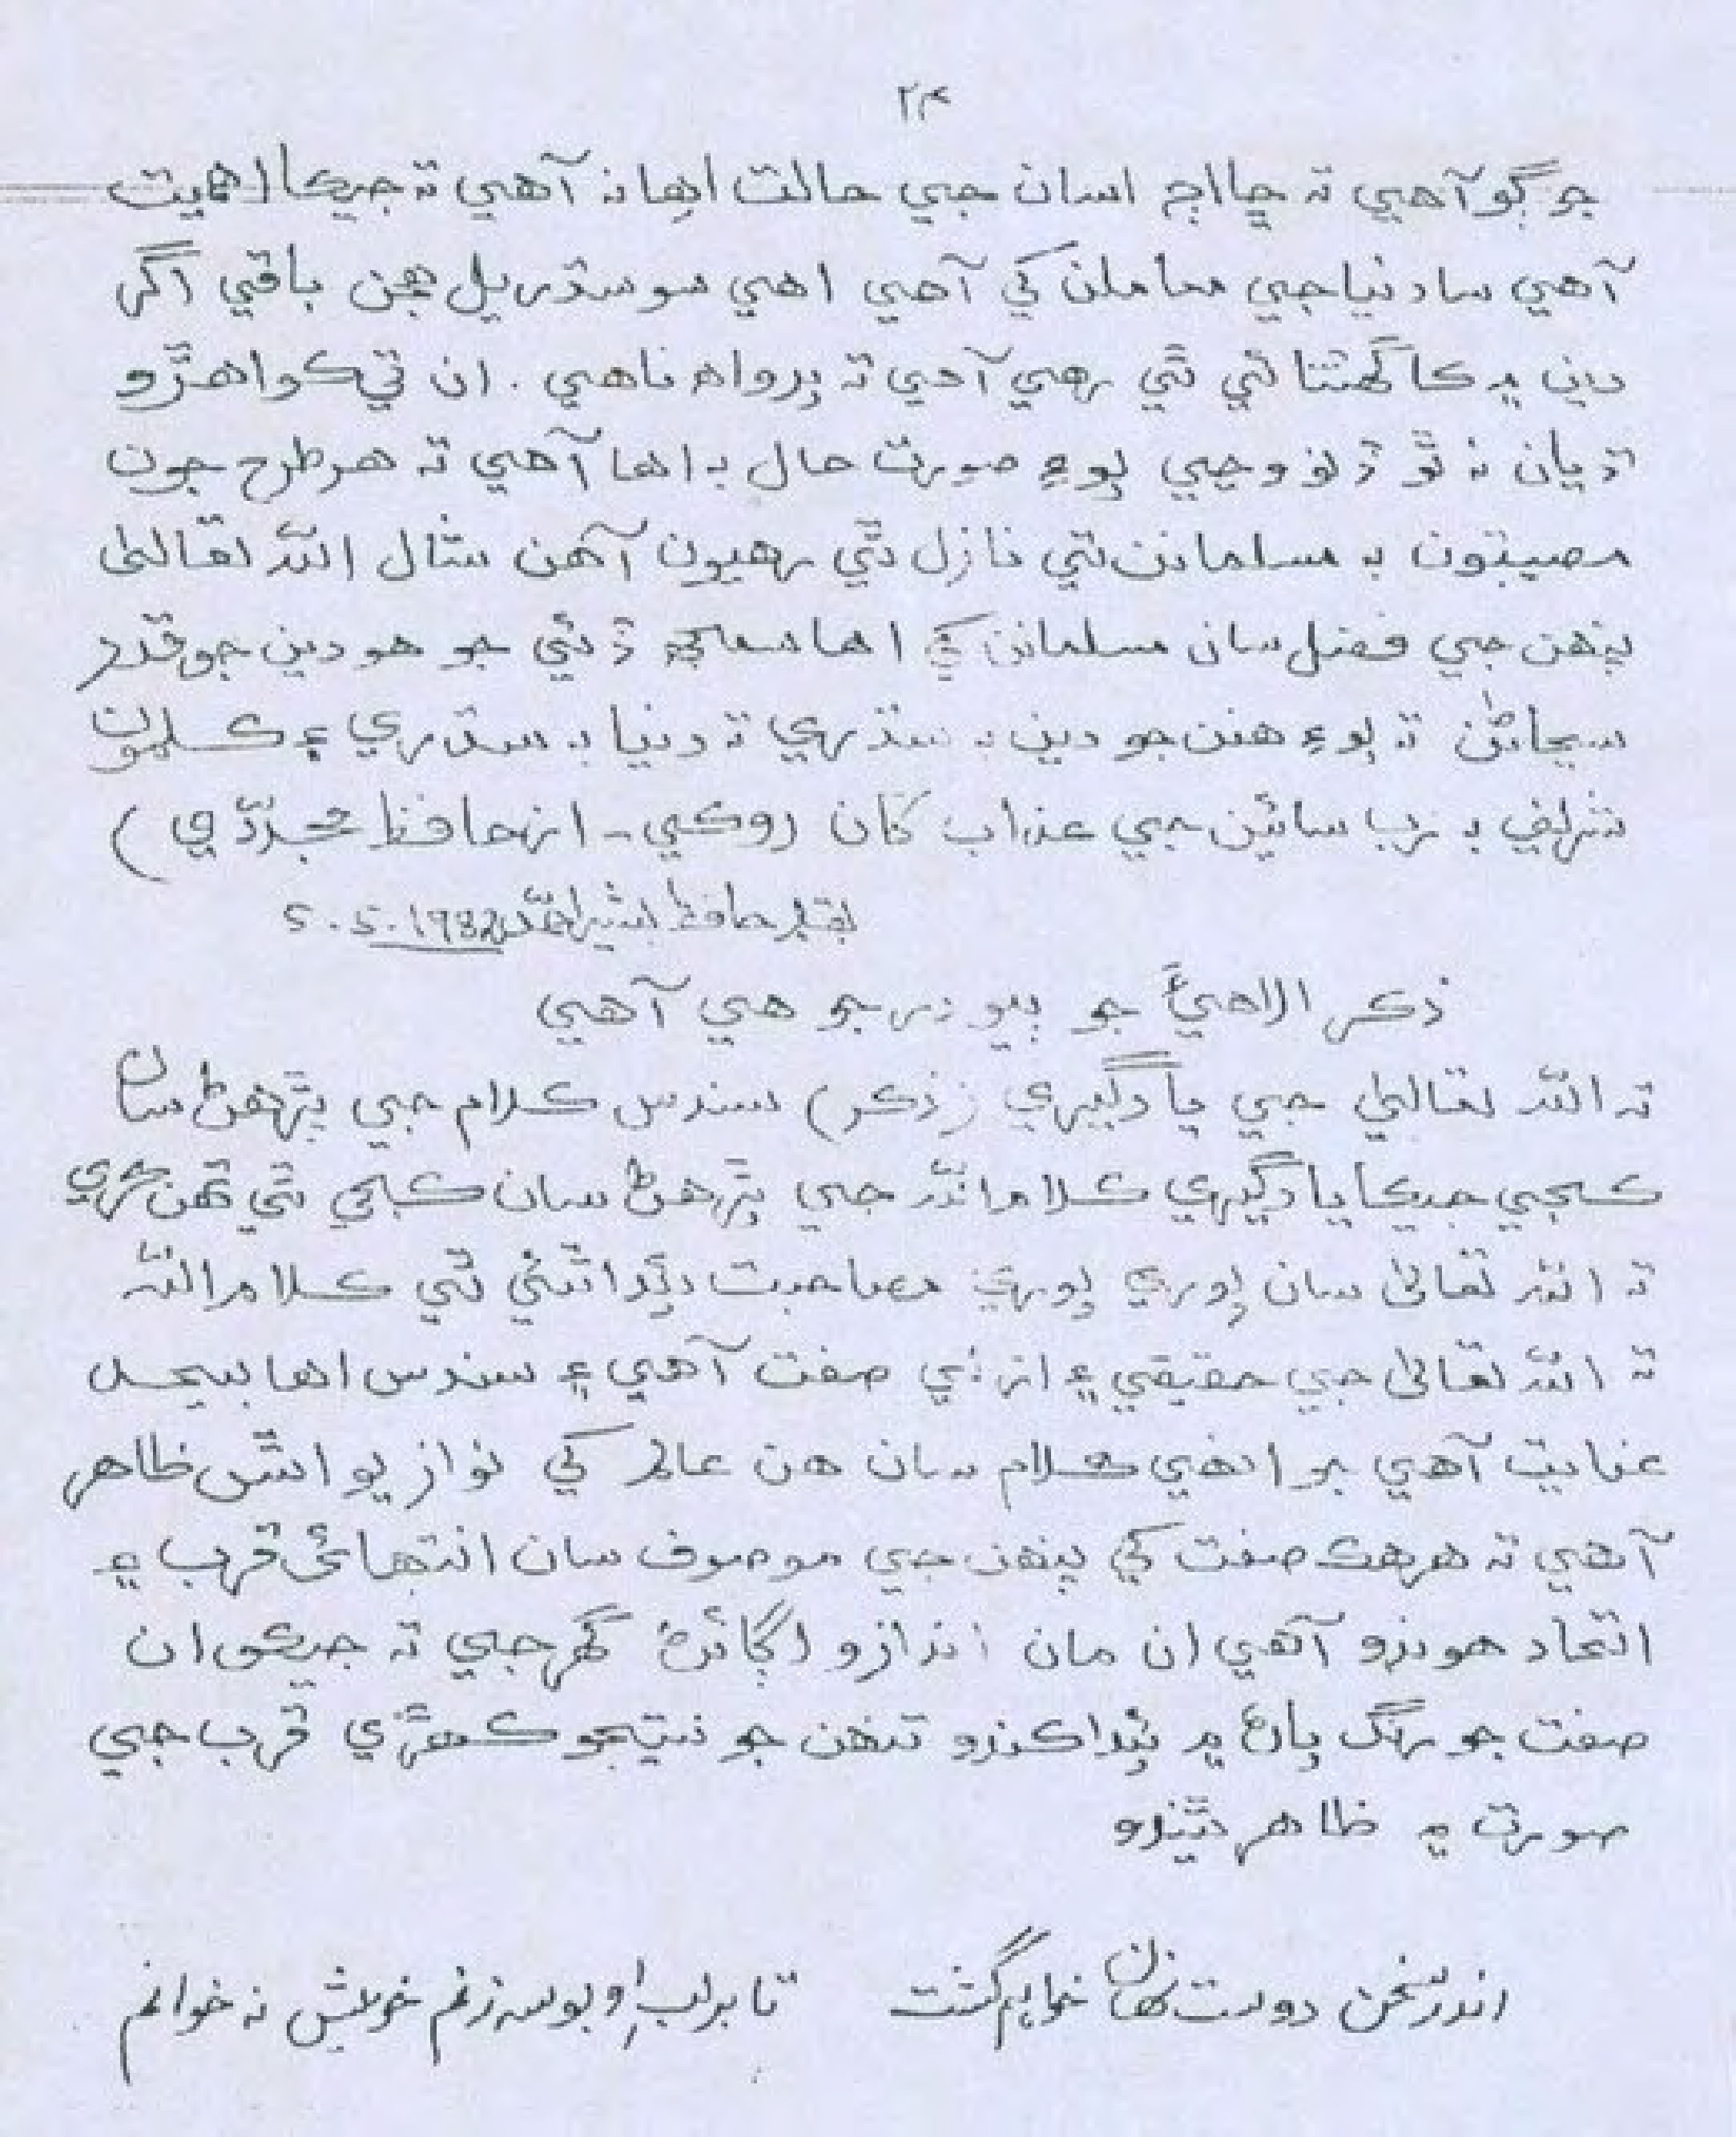 ٢٣
جو ڳو آهي ته ڇا اڄ اسان جي حالت اها نه آهي ته جيڪا اهميت
آهي سا دنيا جي معاملن کي آهي اهي سو سڌريل هجن باقي اگر
دين ۾ ڪا گھٽتائي ٿي رهي آهي ته پرواه ناهي . ان تي ڪو اهڙو
ڌيان نه ٿو ڏنو وڃي پوءِ صورت حال به اها آهي ته هر طرح جون
مصيبتون به مسلمانن تي نازل ٿي رهيون آهن شال الله تعاليٰ
پنهن جي فضل سان مسلمانن کي اها سمجھ ڏئي جو هو دين جو قدر
سڃاڻن ته پوءِ هنن جو دين به سڌري ته دنيا به سڌري ۽ ڪلمون
شريف به رب سائين جي عذاب کان روڪي - از حافظ مجددي)
بقلم حافظ بشير احمد 5.5.1982
ذڪر الاهيءَ جو ٻيو درجو هي آهي
ته الله تعاليٰ جي يادگيري (ذڪر) سندس ڪلام جي پڙهڻ سان
ڪجي جيڪا يادگيري ڪلام الله جي پڙهڻ سان ڪجي ٿي تهن ڪري
ته الله تعاليٰ سان پوري پوري مصاحبت پئدا ٿئي ٿي ڪلام الله
ته الله تعاليٰ جي حقيقي ۽ ازلي صفت آهي ۽ سندس اها بيحد
عنايت آهي جو انهي ڪلام سان هن عالم کي نوازيو اٿس ظاهر
آهي ته هر هڪ صفت کي پنهن جي موصوف سان انتهائي قرب ۽
اتحاد هوندو آهي ان مان اندازو لڳائڻ گھرجي ته جيڪو ان
صفت جو رنگ پاڻ ۾ پئدا ڪندو تنهن جو نتيجو ڪهڙي قرب جي
صورت ۾ ظاهر ٿيندو
اندر سخن دوست نهان خواهم گشت تا بر لب او بوسه زنم خويش نه خوانم